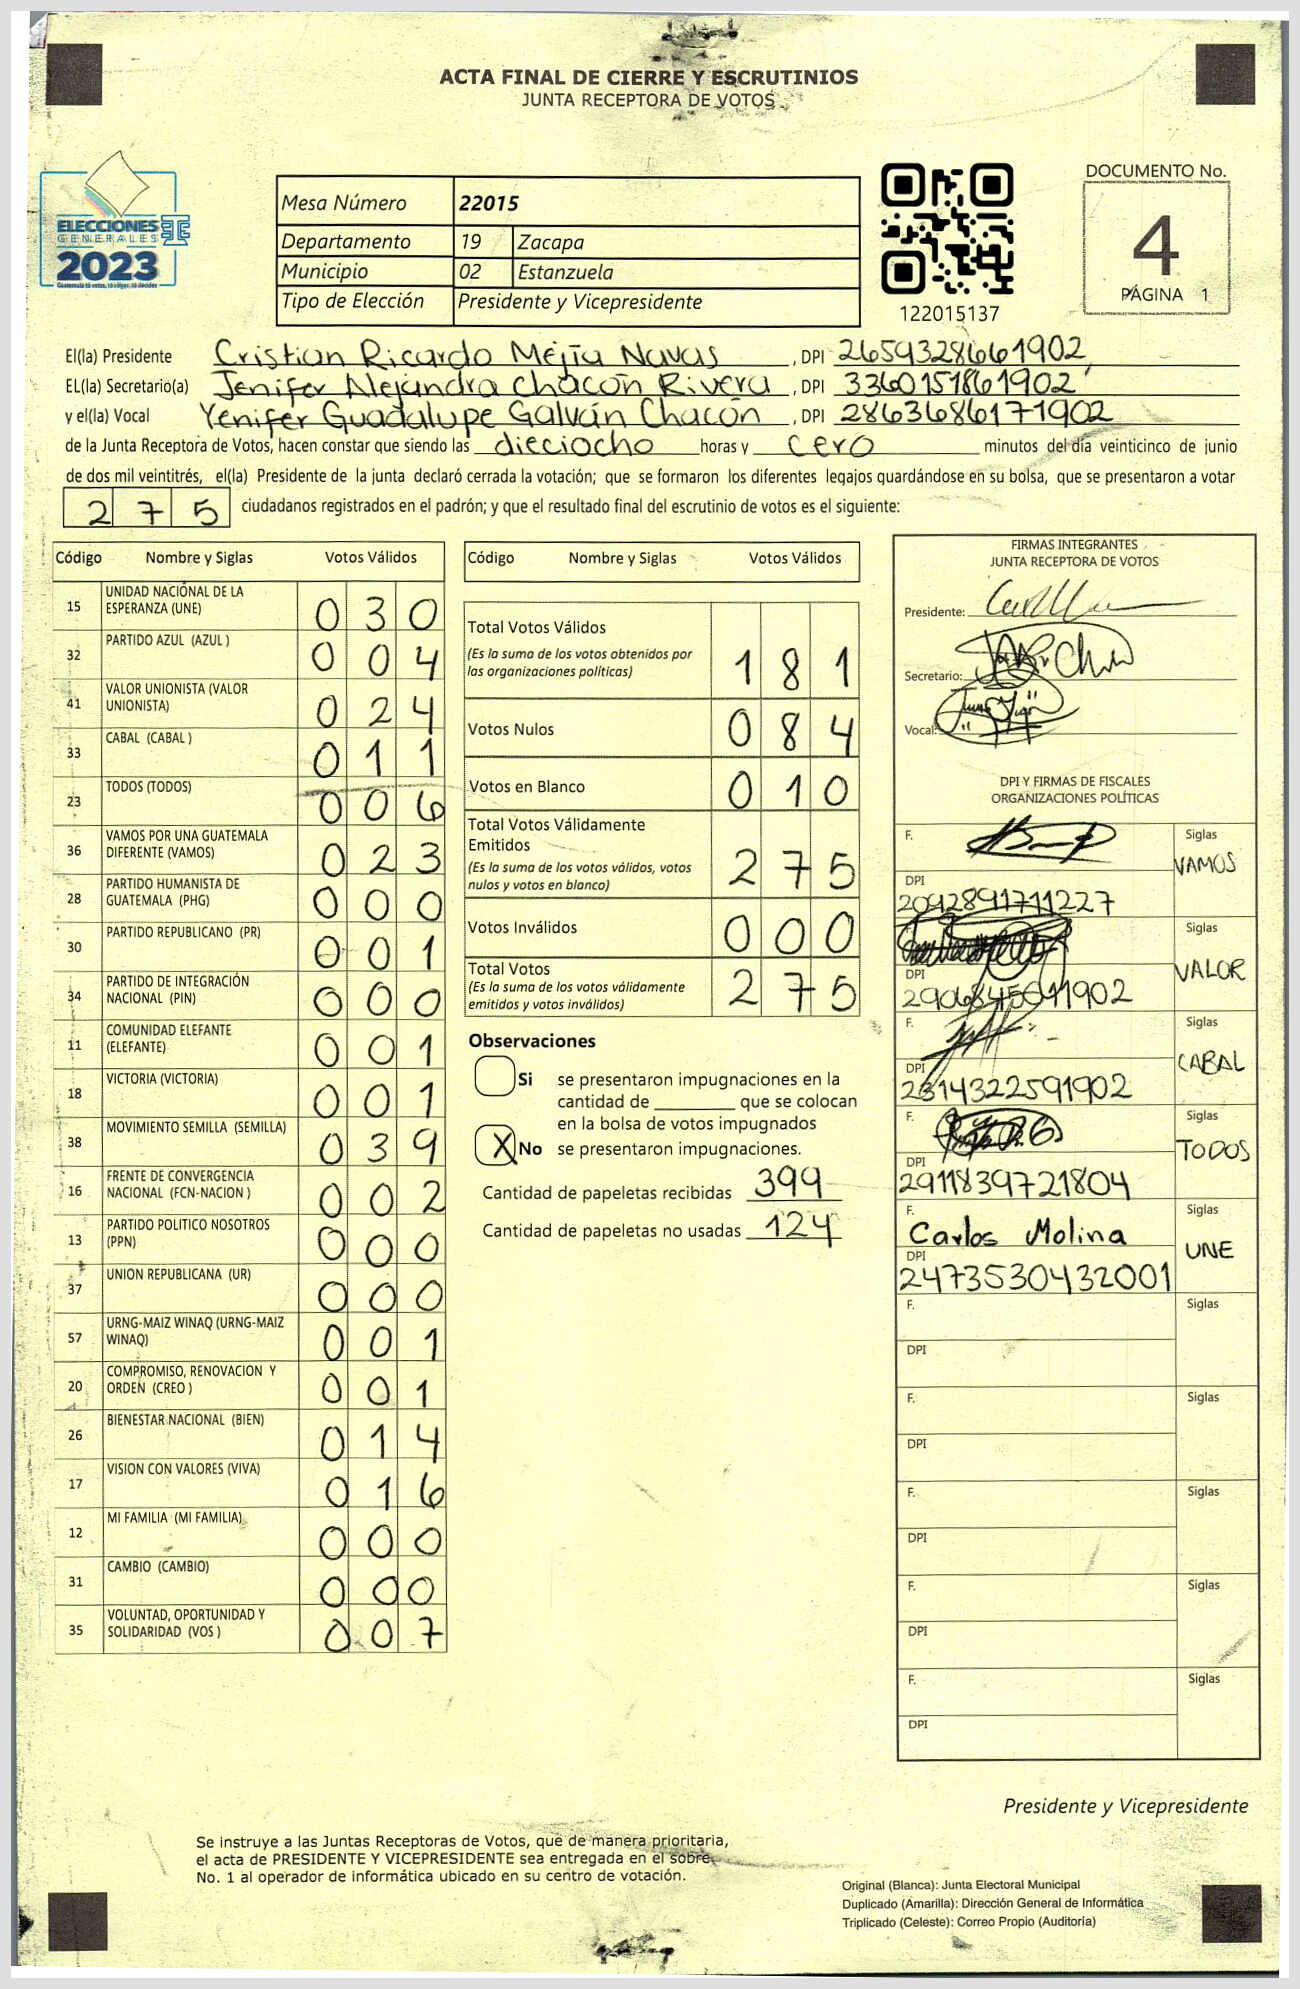 ACTA FINAL DE CIERRE Y ESCRUTINIOS
JUNTA RECEPTORA DE VOTOS
ELECCIONES
GENERALES
2023
Mesa Número 22015
Departamento 19 Zacapa
Municipio 02 Estanzuela
Tipo de Elección Presidente y Vicepresidente
122015137
DOCUMENTO No.
4
PÁGINA 1
El(la) Presidente Cristian Ricardo Mejía Navas, DPI 2659328661902
EL(la) Secretario(a) Jenifer Alejandra Chacón Rivera, DPI 3360151861902
y el(la) Vocal Yenifer Guadalupe Galván Chacón, DPI 2863686171902
de la Junta Receptora de Votos, hacen constar que siendo las dieciocho horas y cero minutos del día veinticinco de junio
de dos mil veintitrés, el(la) Presidente de la junta declaró cerrada la votación; que se formaron los diferentes legajos guardándose en su bolsa, que se presentaron a votar
275 ciudadanos registrados en el padrón; y que el resultado final del escrutinio de votos es el siguiente:
Código Nombre y Siglas Votos Válidos
15 UNIDAD NACIONAL DE LA
ESPERANZA (UNE) 030
32 PARTIDO AZUL (AZUL ) 004
41 VALOR UNIONISTA (VALOR
UNIONISTA) 024
33 CABAL (CABAL ) 011
23 TODOS (TODOS) 006
36 VAMOS POR UNA GUATEMALA
DIFERENTE (VAMOS) 023
28 PARTIDO HUMANISTA DE
GUATEMALA (PHG) 000
30 PARTIDO REPUBLICANO (PR) 001
34 PARTIDO DE INTEGRACIÓN
NACIONAL (PIN) 000
11 COMUNIDAD ELEFANTE
(ELEFANTE) 001
18 VICTORIA (VICTORIA) 001
38 MOVIMIENTO SEMILLA (SEMILLA) 039
16 FRENTE DE CONVERGENCIA
NACIONAL (FCN-NACION ) 002
13 PARTIDO POLITICO NOSOTROS
(PPN) 000
37 UNION REPUBLICANA (UR) 000
57 URNG-MAIZ WINAQ (URNG-MAIZ
WINAQ) 001
20 COMPROMISO, RENOVACION Y
ORDEN (CREO ) 001
26 BIENESTAR NACIONAL (BIEN) 014
17 VISION CON VALORES (VIVA) 016
12 MI FAMILIA (MI FAMILIA) 000
31 CAMBIO (CAMBIO) 000
35 VOLUNTAD, OPORTUNIDAD Y
SOLIDARIDAD (VOS ) 007
Código Nombre y Siglas Votos Válidos
Total Votos Válidos 181
(Es la suma de los votos obtenidos por
las organizaciones políticas)
Votos Nulos 084
Votos en Blanco 010
Total Votos Válidamente
Emitidos 275
(Es la suma de los votos válidos, votos
nulos y votos en blanco)
Votos Inválidos 000
Total Votos 275
(Es la suma de los votos válidamente
emitidos y votos inválidos)
Observaciones
Si se presentaron impugnaciones en la
cantidad de ________ que se colocan
en la bolsa de votos impugnados
X No se presentaron impugnaciones.
Cantidad de papeletas recibidas 399
Cantidad de papeletas no usadas 124
FIRMAS INTEGRANTES
JUNTA RECEPTORA DE VOTOS
Presidente:
Secretario:
Vocal:
DPI Y FIRMAS DE FISCALES
ORGANIZACIONES POLÍTICAS
F. Siglas
VAMOS
DPI
2092891711227
Siglas
VALOR
DPI
2906845011902
F. Siglas
CABAL
DPI
2314322591902
F. Siglas
TODOS
DPI
2911839721804
F. Siglas
Carlos Molina UNE
DPI
2473530432001
F. Siglas
DPI
F. Siglas
DPI
F. Siglas
DPI
F. Siglas
DPI
F. Siglas
DPI
Presidente y Vicepresidente
Se instruye a las Juntas Receptoras de Votos, que de manera prioritaria,
el acta de PRESIDENTE Y VICEPRESIDENTE sea entregada en el sobre
No. 1 al operador de informática ubicado en su centro de votación.
Original (Blanca): Junta Electoral Municipal
Duplicado (Amarilla): Dirección General de Informática
Triplicado (Celeste): Correo Propio (Auditoría)